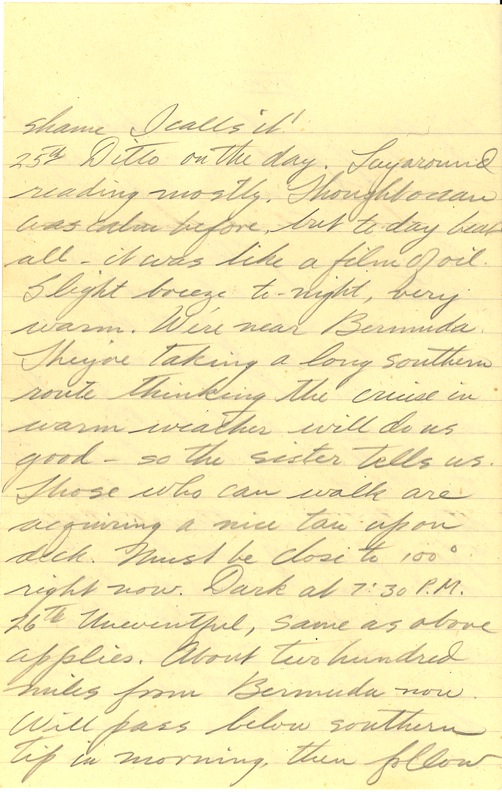 shame I calls it!
25th Ditto on the day. Layaround
reading mostly. Thought ocean
was calm before, but to-day beat
all - it was like a film of oil.
Slight breeze to-night, very
warm. We're near Bermuda.
They're taking a long southern
route thinking the cruise in
warm weather will do us
good - so the sister tells us.
Those who can walk are
acquiring a nice tan upon
deck. Must be close to 100°
right now. Dark at 7:30 P.M.
26th Uneventful, same as above
applies. About two hundred
miles from Bermuda now.
Will pass below southern
tip in morning, then follow